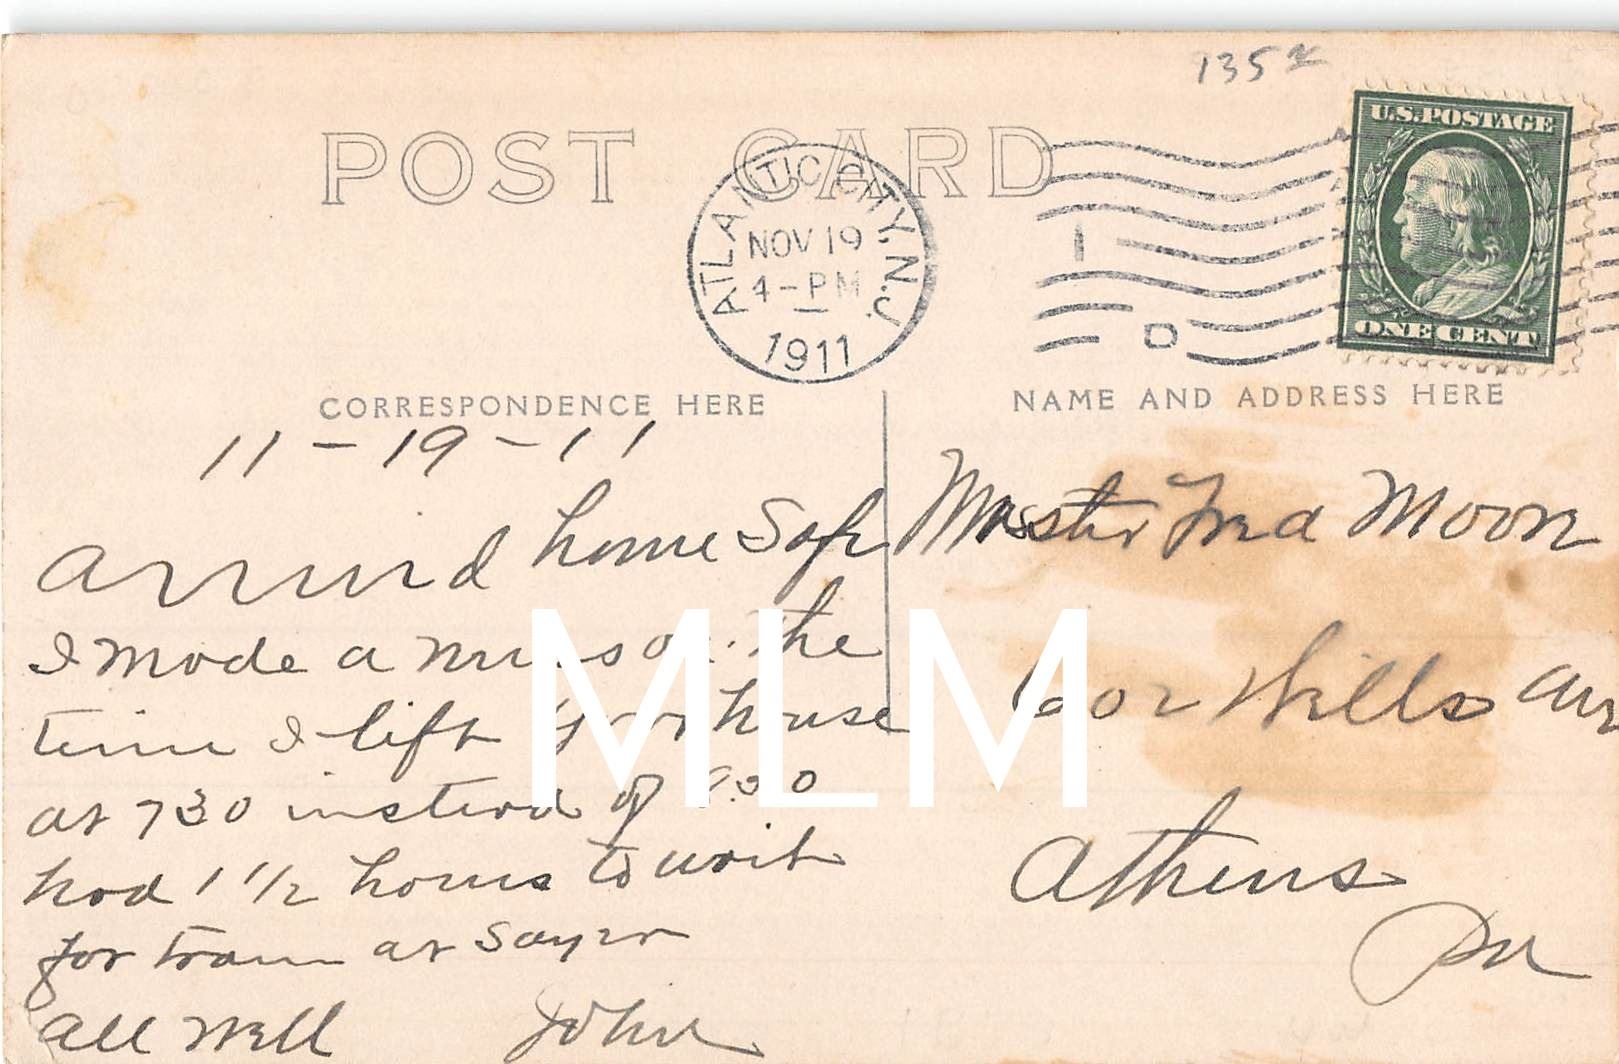 135
POST CARD
U.S. POSTAGE
ATLANTIC CITY, N.J.
NOV 19
4-PM
1911
1 D
ONE CENT
CORRESPONDENCE HERE
NAME AND ADDRESS HERE
11-19-11
arrivd home Safe
I made a on the
time I left your house
at 730 instead of
had 1 1/2 hours to wait
for train at Sayre
all well John
Master Fred Moon
602 Wills Ave
Athens
Pa
MLM